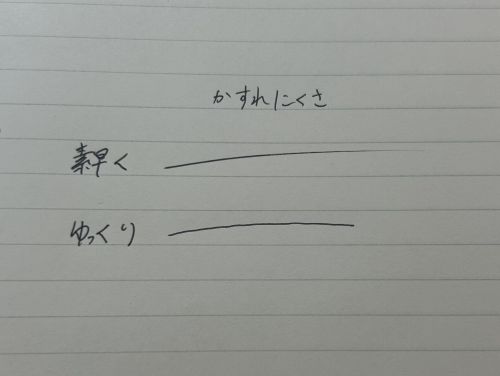 かすれにくさ
素早く
ゆっくり